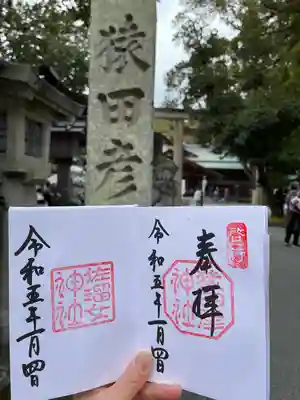 猿田彦
奉拝
啓行
令和五年一月四日
佐瑠女
神社
令和五年一月四日